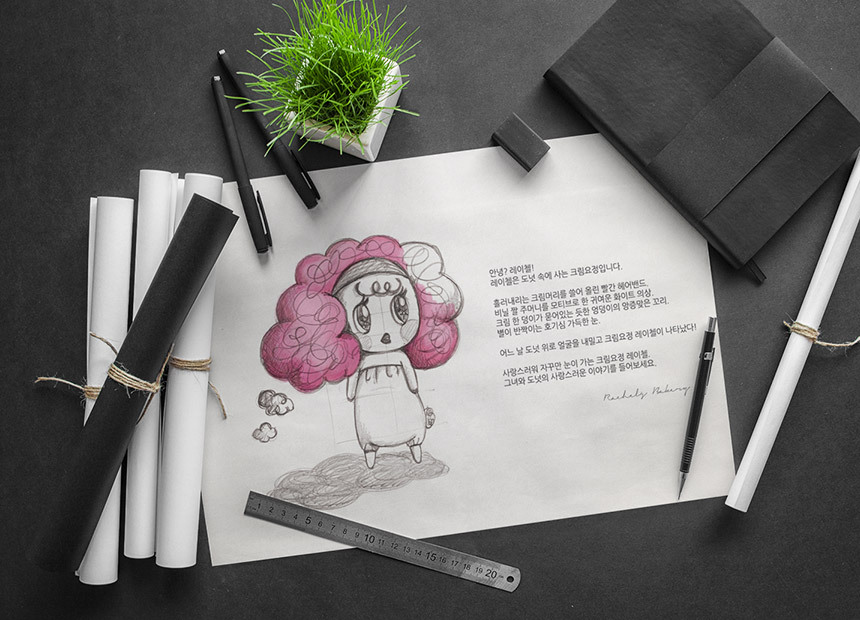 안녕? 레이첼!
레이첼은 도넛 속에 사는 크림요정입니다.
흘러내리는 크림머리를 쓸어 올린 빨간 헤어밴드.
비닐 짤 주머니를 모티브로 한 귀여운 화이트 의상.
크림 한 덩이가 묻어있는 듯한 엉덩이의 앙증맞은 꼬리.
별이 반짝이는 호기심 가득한 눈.
어느 날 도넛 위로 얼굴을 내밀고 크림요정 레이첼이 나타났다!
사랑스러워 자꾸만 눈이 가는 크림요정 레이첼.
그녀와 도넛의 사랑스러운 이야기를 들어보세요.
1 2 3 4 5 6 7 8 9 10 11 12 13 14 15 16 17 18 19 20